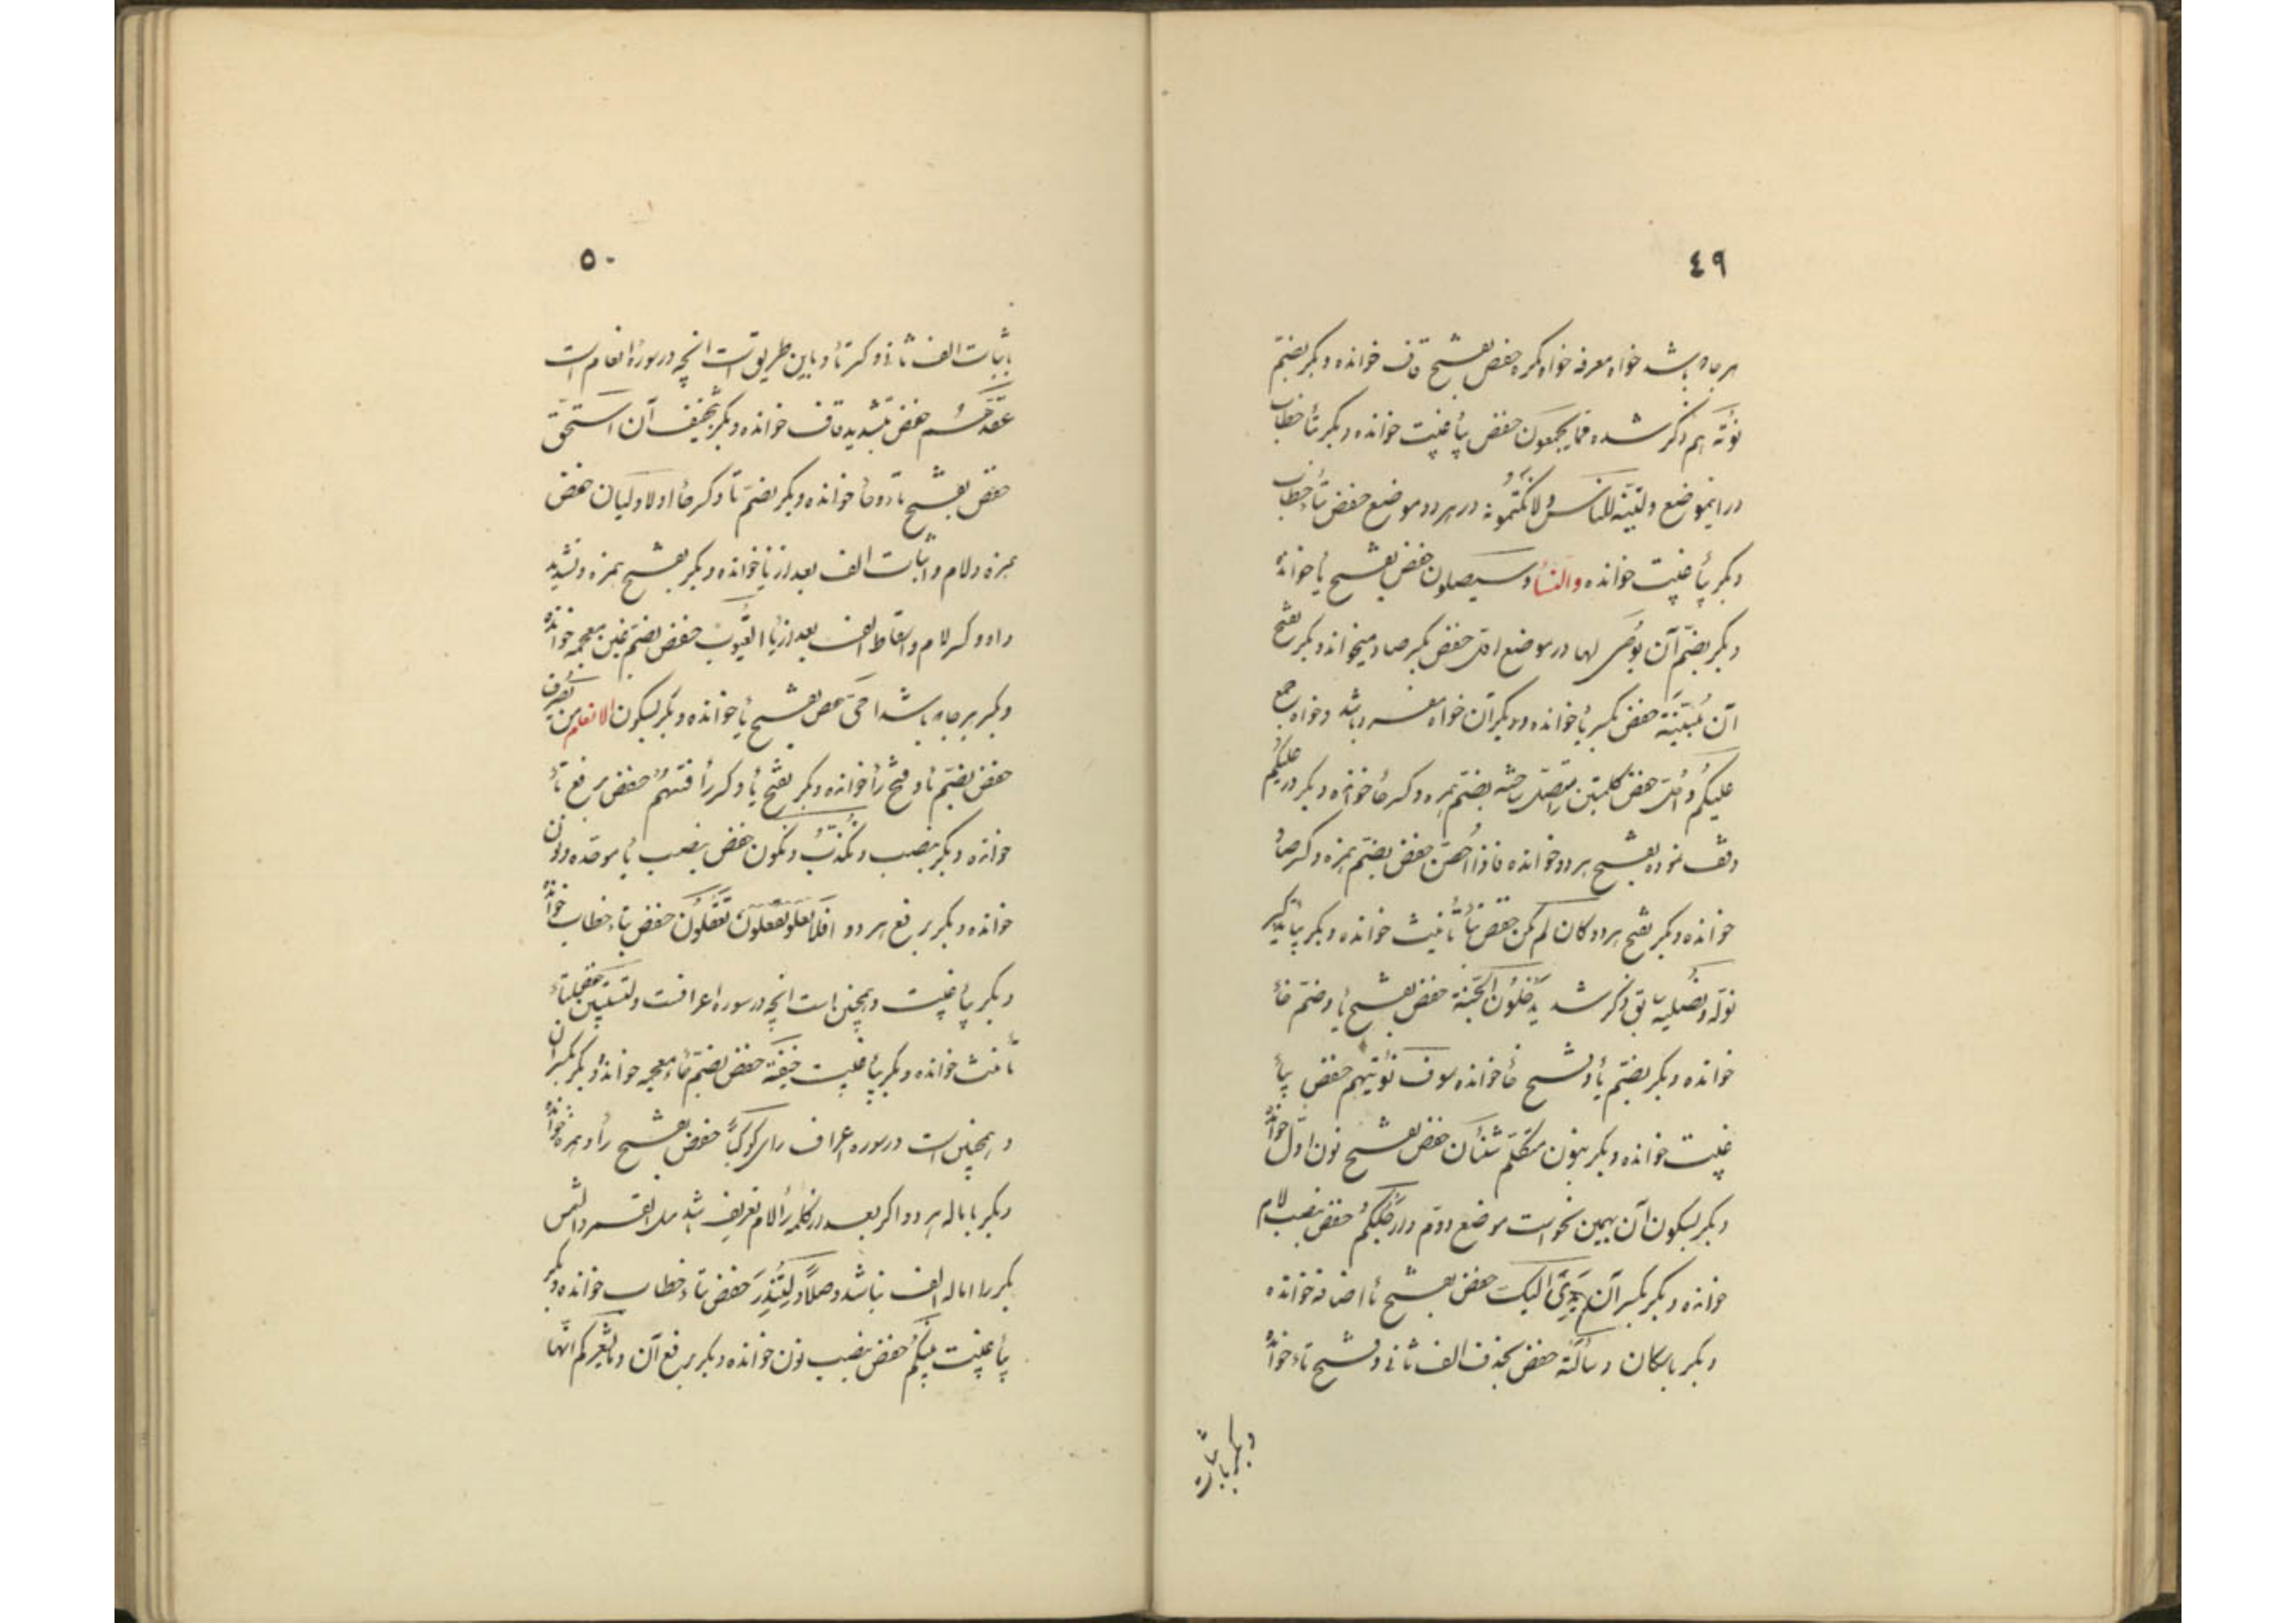 ٤٩
هر جا باشد خواه معرفه خواه نکره حفص بفتح قاف خوانده و بکر بضم
نؤته هم ذکر شده مما یجمعون حفص بیاء غیبت خوانده و بکر بتاء خطاب
در اینموضع و لتبیننه للناس ولا تکتمونه در هر دو موضع حفص بتاء خطاب
و بکر بیاء غیبت خوانده والنسآء وسیصلون حفص بفتح یاء خوانده
و بکر بضم آن یوصی بها در موضع اول حفص بکسر صاد میخواند و بکر بفتح
آن مبینة حفص بکسر یاء خوانده و بکر آن خواه مفرد باشد و خواه جمع
علیکم و احل حفص بضم همزه و کسر حاء خوانده و بکر در علیکم
وقف نموده بفتح هر دو خوانده فاذا احصن حفص بضم همزه و کسر صاد
خوانده و بکر بفتح هر دو کان لم تکن حفص بتاء تأنیث خوانده و بکر بیاء تذکیر
نوله و نصلیه سابق ذکر شد یدخلون الجنة حفص بفتح یاء و ضم خاء
خوانده و بکر بضم یاء و فتح خاء خوانده سوف نؤتیهم حفص بیاء
غیبت خوانده و بکر بنون متکلم شنئان حفص بفتح نون اول خوانده
و بکر بسکون آن بهمین نحو است موضع دوم وارجلکم حفص بنصب لام
خوانده و بکر بکسر آن یدی الیک حفص بفتح یاء اضافه خوانده
و بکر باسکان رسالته حفص بحذف الف ثانی و فتح تاء خوانده
و بکر باثبات
٥٠
باثبات الف ثانی و کسر تاء و باین طریق است انچه در سورهٔ انعام است
عقدتم حفص بتشدید قاف خوانده و بکر بتخفیف آن استحق
حفص بفتح تاء و حاء خوانده و بکر بضم تا و کسر حاء اولا ولیان حفص
همزه و لام و اثبات الف بعد از یا خوانده و بکر بفتح همزه و تشدید
واو و کسر لام و اسقاط الف بعد از یاء الغیوب حفص بضم غین معجمه خوانده
و بکر هر جا باشد امی حفص بفتح یاء خوانده و بکر بسکون الانعام من یصرف
حفص بضم یاء و فتح راء خوانده و بکر بفتح یاء و کسر راء فتنتهم حفص برفع تاء
خوانده و بکر بنصب و نکذب و نکون حفص بنصب باء موحده و نون
خوانده و بکر برفع هر دو افلا تعقلون حفص بتاء خطاب خوانده
و بکر بیاء غیبت و همچنین است انچه در سوره اعرافست ولتستبین حفص بتاء
تأنیث خوانده و بکر بیاء غیبت خفیة حفص بضم خاء معجمه خوانده و بکر بکسر آن
و همچنین است در سوره اعراف رای کوکبا حفص بفتح راء و همزه خوانده
و بکر باماله هر دو اگر بعد از کلمه رأ لام تعریف باشد مثل القمر والشمس
بکر را اماله الف نباشد وصلا ولتنذر حفص بتاء خطاب خوانده و بکر
بیاء غیبت بینکم حفص بنصب نون خوانده و بکر برفع آن و ما یشعرکم انها